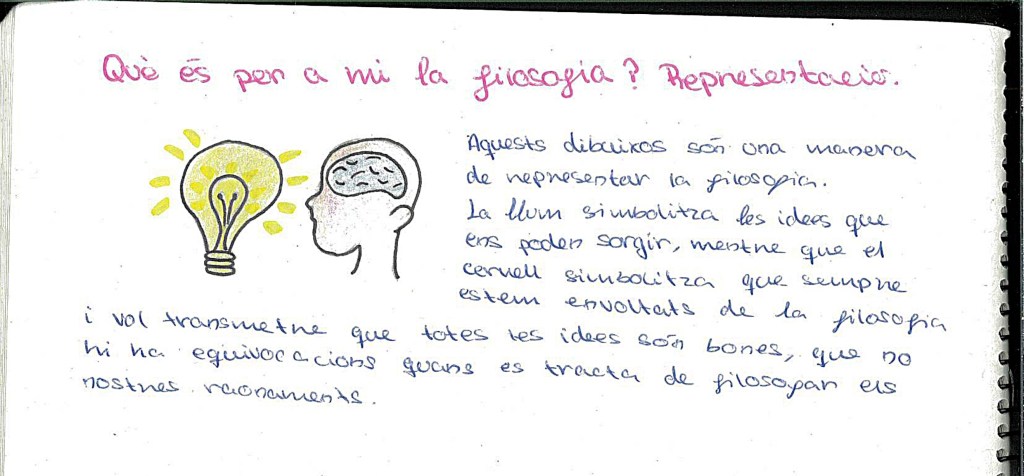 Què és per a mi la filosofia? Representació.
Aquests dibuixos són una manera
de representar la filosofia.
La llum simbolitza les idees que
ens poden sorgir, mentre que el
cervell simbolitza que sempre
estem envoltats de la filosofia
i vol transmetre que totes les idees són bones, que no
hi ha equivocacions quans es tracta de filosofar els
nostres raonaments.